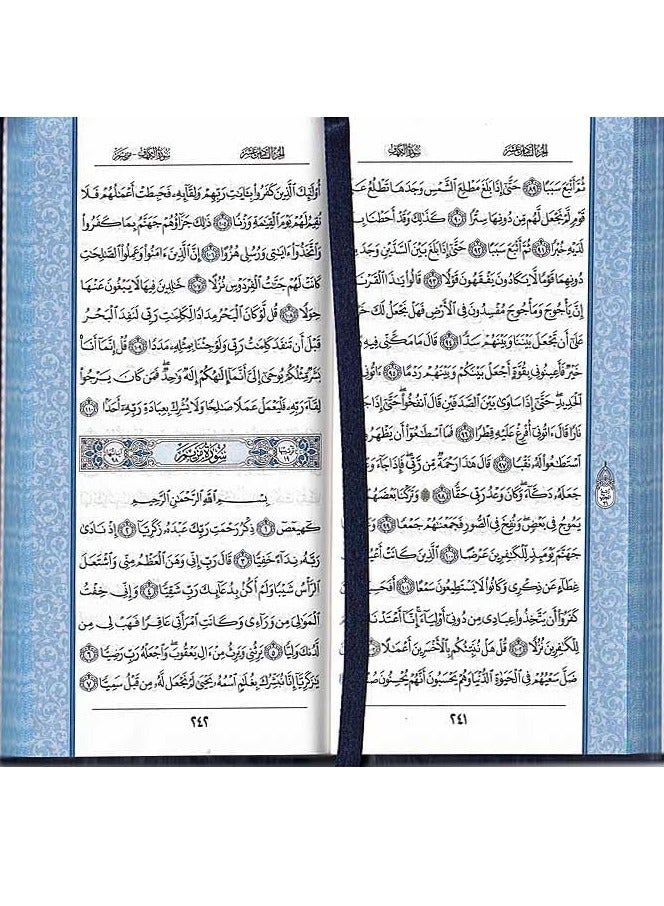 الجزء السادس عشر
سورة الكهف
ثُمَّ أَتْبَعَ سَبَبًا ٨٩ حَتَّىٰٓ إِذَا بَلَغَ مَطْلِعَ ٱلشَّمْسِ وَجَدَهَا تَطْلُعُ
قَوْمٍ لَّمْ نَجْعَل لَّهُم مِّن دُونِهَا سِتْرًا ٩٠ كَذَٰلِكَ وَقَدْ أَحَطْنَا
لَدَيْهِ خُبْرًا ٩١ ثُمَّ أَتْبَعَ سَبَبًا ٩٢ حَتَّىٰٓ إِذَا بَلَغَ بَيْنَ ٱلسَّدَّيْنِ وَجَدَ
دُونِهِمَا قَوْمًا لَّا يَكَادُونَ يَفْقَهُونَ قَوْلًا ٩٣ قَالُوا۟ يَٰذَا
إِنَّ يَأْجُوجَ وَمَأْجُوجَ مُفْسِدُونَ فِى ٱلْأَرْضِ فَهَلْ نَجْعَلُ لَكَ
عَلَىٰٓ أَن تَجْعَلَ بَيْنَنَا وَبَيْنَهُمْ سَدًّا ٩٤ قَالَ مَا مَكَّنِّى فِيهِ
خَيْرٌ فَأَعِينُونِى بِقُوَّةٍ أَجْعَلْ بَيْنَكُمْ وَبَيْنَهُمْ رَدْمًا ٩٥ ءَاتُونِى
ٱلْحَدِيدِ ۖ حَتَّىٰٓ إِذَا سَاوَىٰ بَيْنَ ٱلصَّدَفَيْنِ قَالَ ٱنفُخُوا۟ ۖ حَتَّىٰٓ إِذَا
نَارًا قَالَ ءَاتُونِىٓ أُفْرِغْ عَلَيْهِ قِطْرًا ٩٦ فَمَا ٱسْطَٰعُوٓا۟ أَن
ٱسْتَطَٰعُوا۟ لَهُۥ نَقْبًا ٩٧ قَالَ هَٰذَا رَحْمَةٌ مِّن رَّبِّى ۖ فَإِذَا جَآءَ
جَعَلَهُۥ دَكَّآءَ ۖ وَكَانَ وَعْدُ رَبِّى حَقًّا ٩٨ ۞ وَتَرَكْنَا بَعْضَهُمْ
يَمُوجُ فِى بَعْضٍ ۖ وَنُفِخَ فِى ٱلصُّورِ فَجَمَعْنَٰهُمْ جَمْعًا ٩٩
جَهَنَّمَ يَوْمَئِذٍ لِّلْكَٰفِرِينَ عَرْضًا ١٠٠ ٱلَّذِينَ كَانَتْ
غِطَآءٍ عَن ذِكْرِى وَكَانُوا۟ لَا يَسْتَطِيعُونَ سَمْعًا ١٠١
كَفَرُوٓا۟ أَن يَتَّخِذُوا۟ عِبَادِى مِن دُونِىٓ أَوْلِيَآءَ ۚ إِنَّآ أَعْتَدْنَا
لِلْكَٰفِرِينَ نُزُلًا ١٠٢ قُلْ هَلْ نُنَبِّئُكُم بِٱلْأَخْسَرِينَ أَعْمَٰلًا
ضَلَّ سَعْيُهُمْ فِى ٱلْحَيَوٰةِ ٱلدُّنْيَا وَهُمْ يَحْسَبُونَ أَنَّهُمْ يُحْسِنُونَ
٢٤١
الجزء السادس عشر
سورة الكهف - مريم
أُو۟لَٰٓئِكَ ٱلَّذِينَ كَفَرُوا۟ بِـَٔايَٰتِ رَبِّهِمْ وَلِقَآئِهِۦ فَحَبِطَتْ أَعْمَٰلُهُمْ فَلَا
نُقِيمُ لَهُمْ يَوْمَ ٱلْقِيَٰمَةِ وَزْنًا ١٠٥ ذَٰلِكَ جَزَآؤُهُمْ جَهَنَّمُ بِمَا كَفَرُوا۟
وَٱتَّخَذُوٓا۟ ءَايَٰتِى وَرُسُلِى هُزُوًا ١٠٦ إِنَّ ٱلَّذِينَ ءَامَنُوا۟ وَعَمِلُوا۟ ٱلصَّٰلِحَٰتِ
كَانَتْ لَهُمْ جَنَّٰتُ ٱلْفِرْدَوْسِ نُزُلًا ١٠٧ خَٰلِدِينَ فِيهَا لَا يَبْغُونَ عَنْهَا
حِوَلًا ١٠٨ قُل لَّوْ كَانَ ٱلْبَحْرُ مِدَادًا لِّكَلِمَٰتِ رَبِّى لَنَفِدَ ٱلْبَحْرُ
قَبْلَ أَن تَنفَدَ كَلِمَٰتُ رَبِّى وَلَوْ جِئْنَا بِمِثْلِهِۦ مَدَدًا ١٠٩ قُلْ إِنَّمَآ أَنَا۠
بَشَرٌ مِّثْلُكُمْ يُوحَىٰٓ إِلَىَّ أَنَّمَآ إِلَٰهُكُمْ إِلَٰهٌ وَٰحِدٌ ۖ فَمَن كَانَ يَرْجُوا۟
لِقَآءَ رَبِّهِۦ فَلْيَعْمَلْ عَمَلًا صَٰلِحًا وَلَا يُشْرِكْ بِعِبَادَةِ رَبِّهِۦٓ أَحَدًۢا ١١٠
ترتيبها ١٩ سورة مريم آياتها ٩٨
بِسْمِ ٱللَّهِ ٱلرَّحْمَٰنِ ٱلرَّحِيمِ
كٓهيعٓصٓ ١ ذِكْرُ رَحْمَتِ رَبِّكَ عَبْدَهُۥ زَكَرِيَّآ ٢ إِذْ نَادَىٰ
رَبَّهُۥ نِدَآءً خَفِيًّا ٣ قَالَ رَبِّ إِنِّى وَهَنَ ٱلْعَظْمُ مِنِّى وَٱشْتَعَلَ
ٱلرَّأْسُ شَيْبًا وَلَمْ أَكُنۢ بِدُعَآئِكَ رَبِّ شَقِيًّا ٤ وَإِنِّى خِفْتُ
ٱلْمَوَٰلِىَ مِن وَرَآءِى وَكَانَتِ ٱمْرَأَتِى عَاقِرًا فَهَبْ لِى مِن
لَّدُنكَ وَلِيًّا ٥ يَرِثُنِى وَيَرِثُ مِنْ ءَالِ يَعْقُوبَ ۖ وَٱجْعَلْهُ رَبِّ رَضِيًّا ٦
يَٰزَكَرِيَّآ إِنَّا نُبَشِّرُكَ بِغُلَٰمٍ ٱسْمُهُۥ يَحْيَىٰ لَمْ نَجْعَل لَّهُۥ مِن قَبْلُ سَمِيًّا ٧
٢٤٢